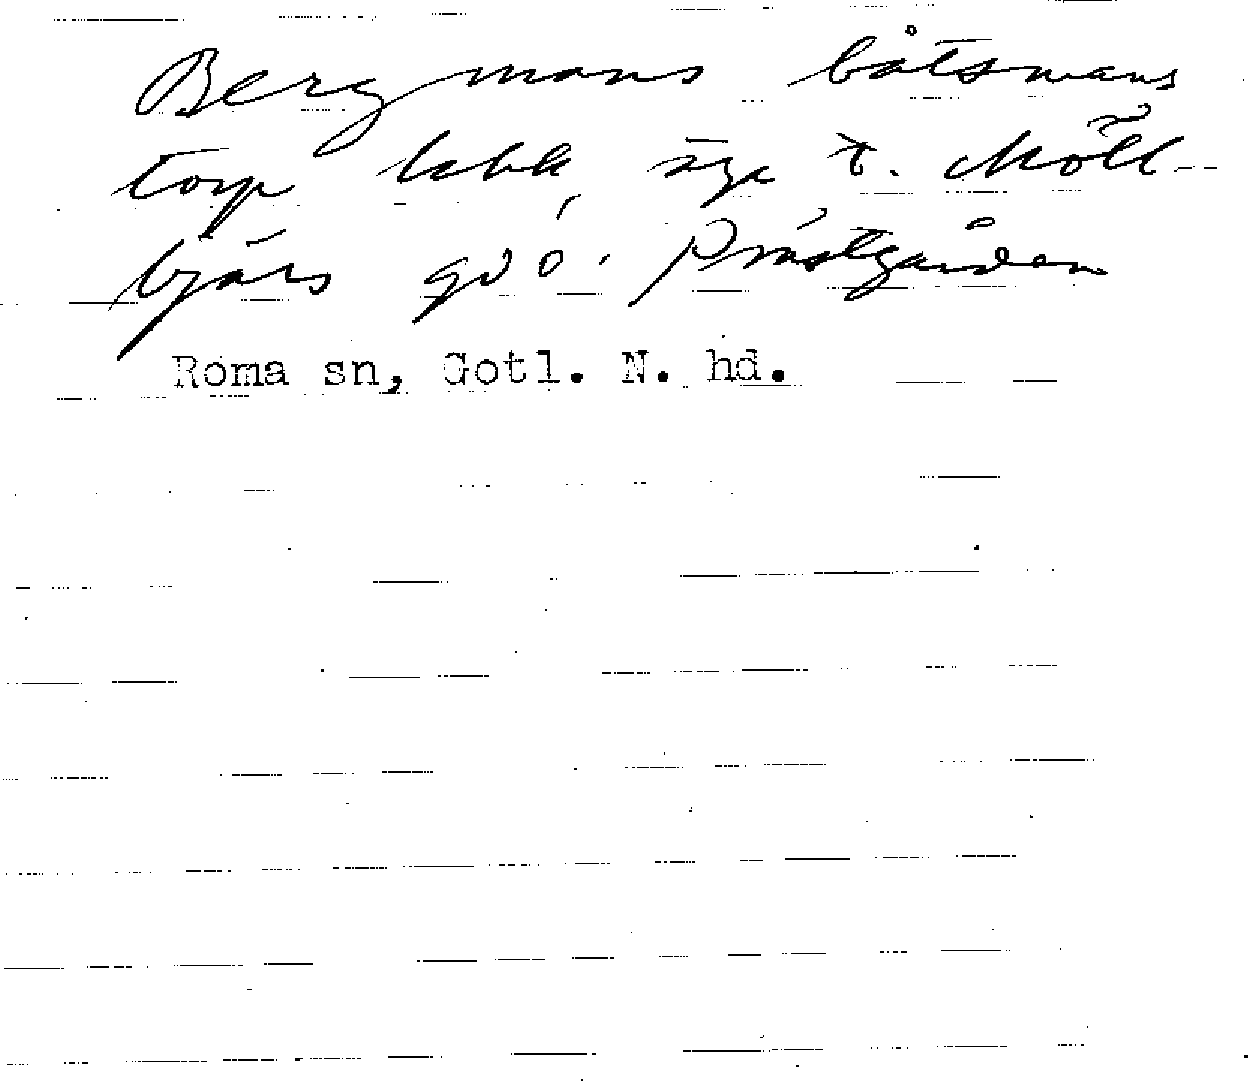 Bergmans båtsmans
torp t. Möll-
bjärs gd o. Prästgården
Roma sn, Gotl. N. hd.